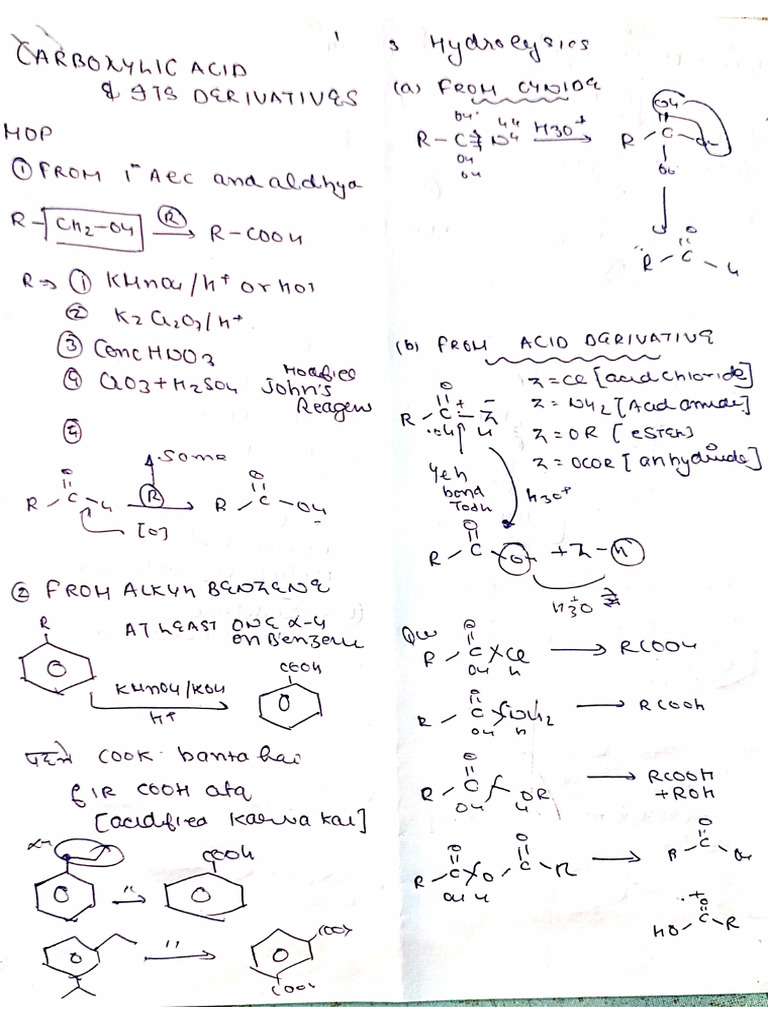 1
CARBOXYLIC ACID
& ITS DERIVATIVES
MOP
① FROM 1° Alc and aldhya
R-CH2-OH (R) → R-COOH
R ⇒ ① KMnO4/H+ or HO-
② K2Cr2O7/H+
③ Conc HNO3
④ CrO3+H2SO4 John's
Reagen
Some
R-C(=O)-H (R) → R-C(=O)-OH
[O]
② FROM ALKYL BENZENE
R
AT LEAST ONE α-H
on Benzene
COOH
KMnO4/KOH
H+
पहले COOK banta hai
fir COOH ata
[acidified karwa kar]
αH
COOH
"
"
COOH
COOH
3 Hydrolysics
(a) FROM CYNIDE
OH HH
R-C≡N H3O+ →
OH
OH
OH
R-C-OH
OH
O
R-C-H
(b) FROM ACID DERIVATIVE
Z=Cl [acid chloride]
Z=NH2 [Acid amide]
Z=OR [ester]
Z=OCOR [anhydride]
O
R-C-Z
OH H
Yeh
bond
Todh
H3O+
O
R-C-O- +Z-H
H3O+
Qu
O
R-C-Cl → RCOOH
OH H
O
R-C-NH2 → RCOOH
OH H
O
R-C-OR → RCOOH
+ROH
OH H
O O
R-C-O-C-R → R-C(=O)-OH
OH H
+
HO-C(=O)-R